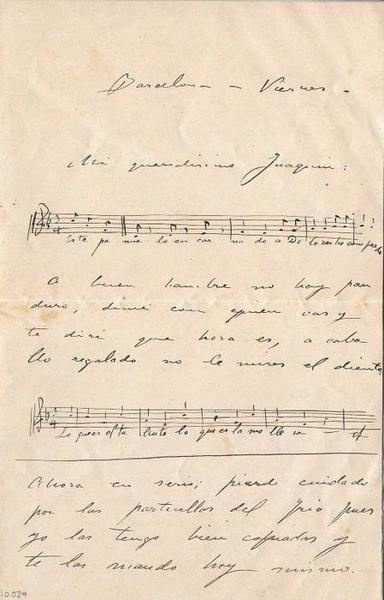 Barcelona - Viernes -
Mi queridísimo Joaquín:
Si te pa
A buen hambre no hay pan
duro, dime con quien vas y
te diré que hora es, a caba
llo regalado no le mires el diente
Lo que es el ta lento lo que es la mo lle ra
Ahora en serio; pierde cuidado
por las particellas del trío pues
yo las tengo bien copiadas y
te las mando hoy mismo.
10.029